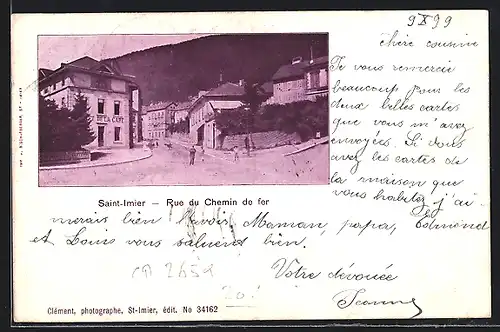 9 X 99
Chère cousine
Je vous remercie
beaucoup pour les
deux belles cartes
que vous m'avez
envoyées. Si vous
avez les cartes de
la maison que
vous habitez j'ai-
merais bien l'avoir. Maman, papa, Edmond
et Louis vous saluent bien.
Votre dévouée
Jeanne
DE LA GARE
Saint-Imier — Rue du Chemin de fer
2652
20.-
Clément, photographe, St-Imier, édit. No 34162